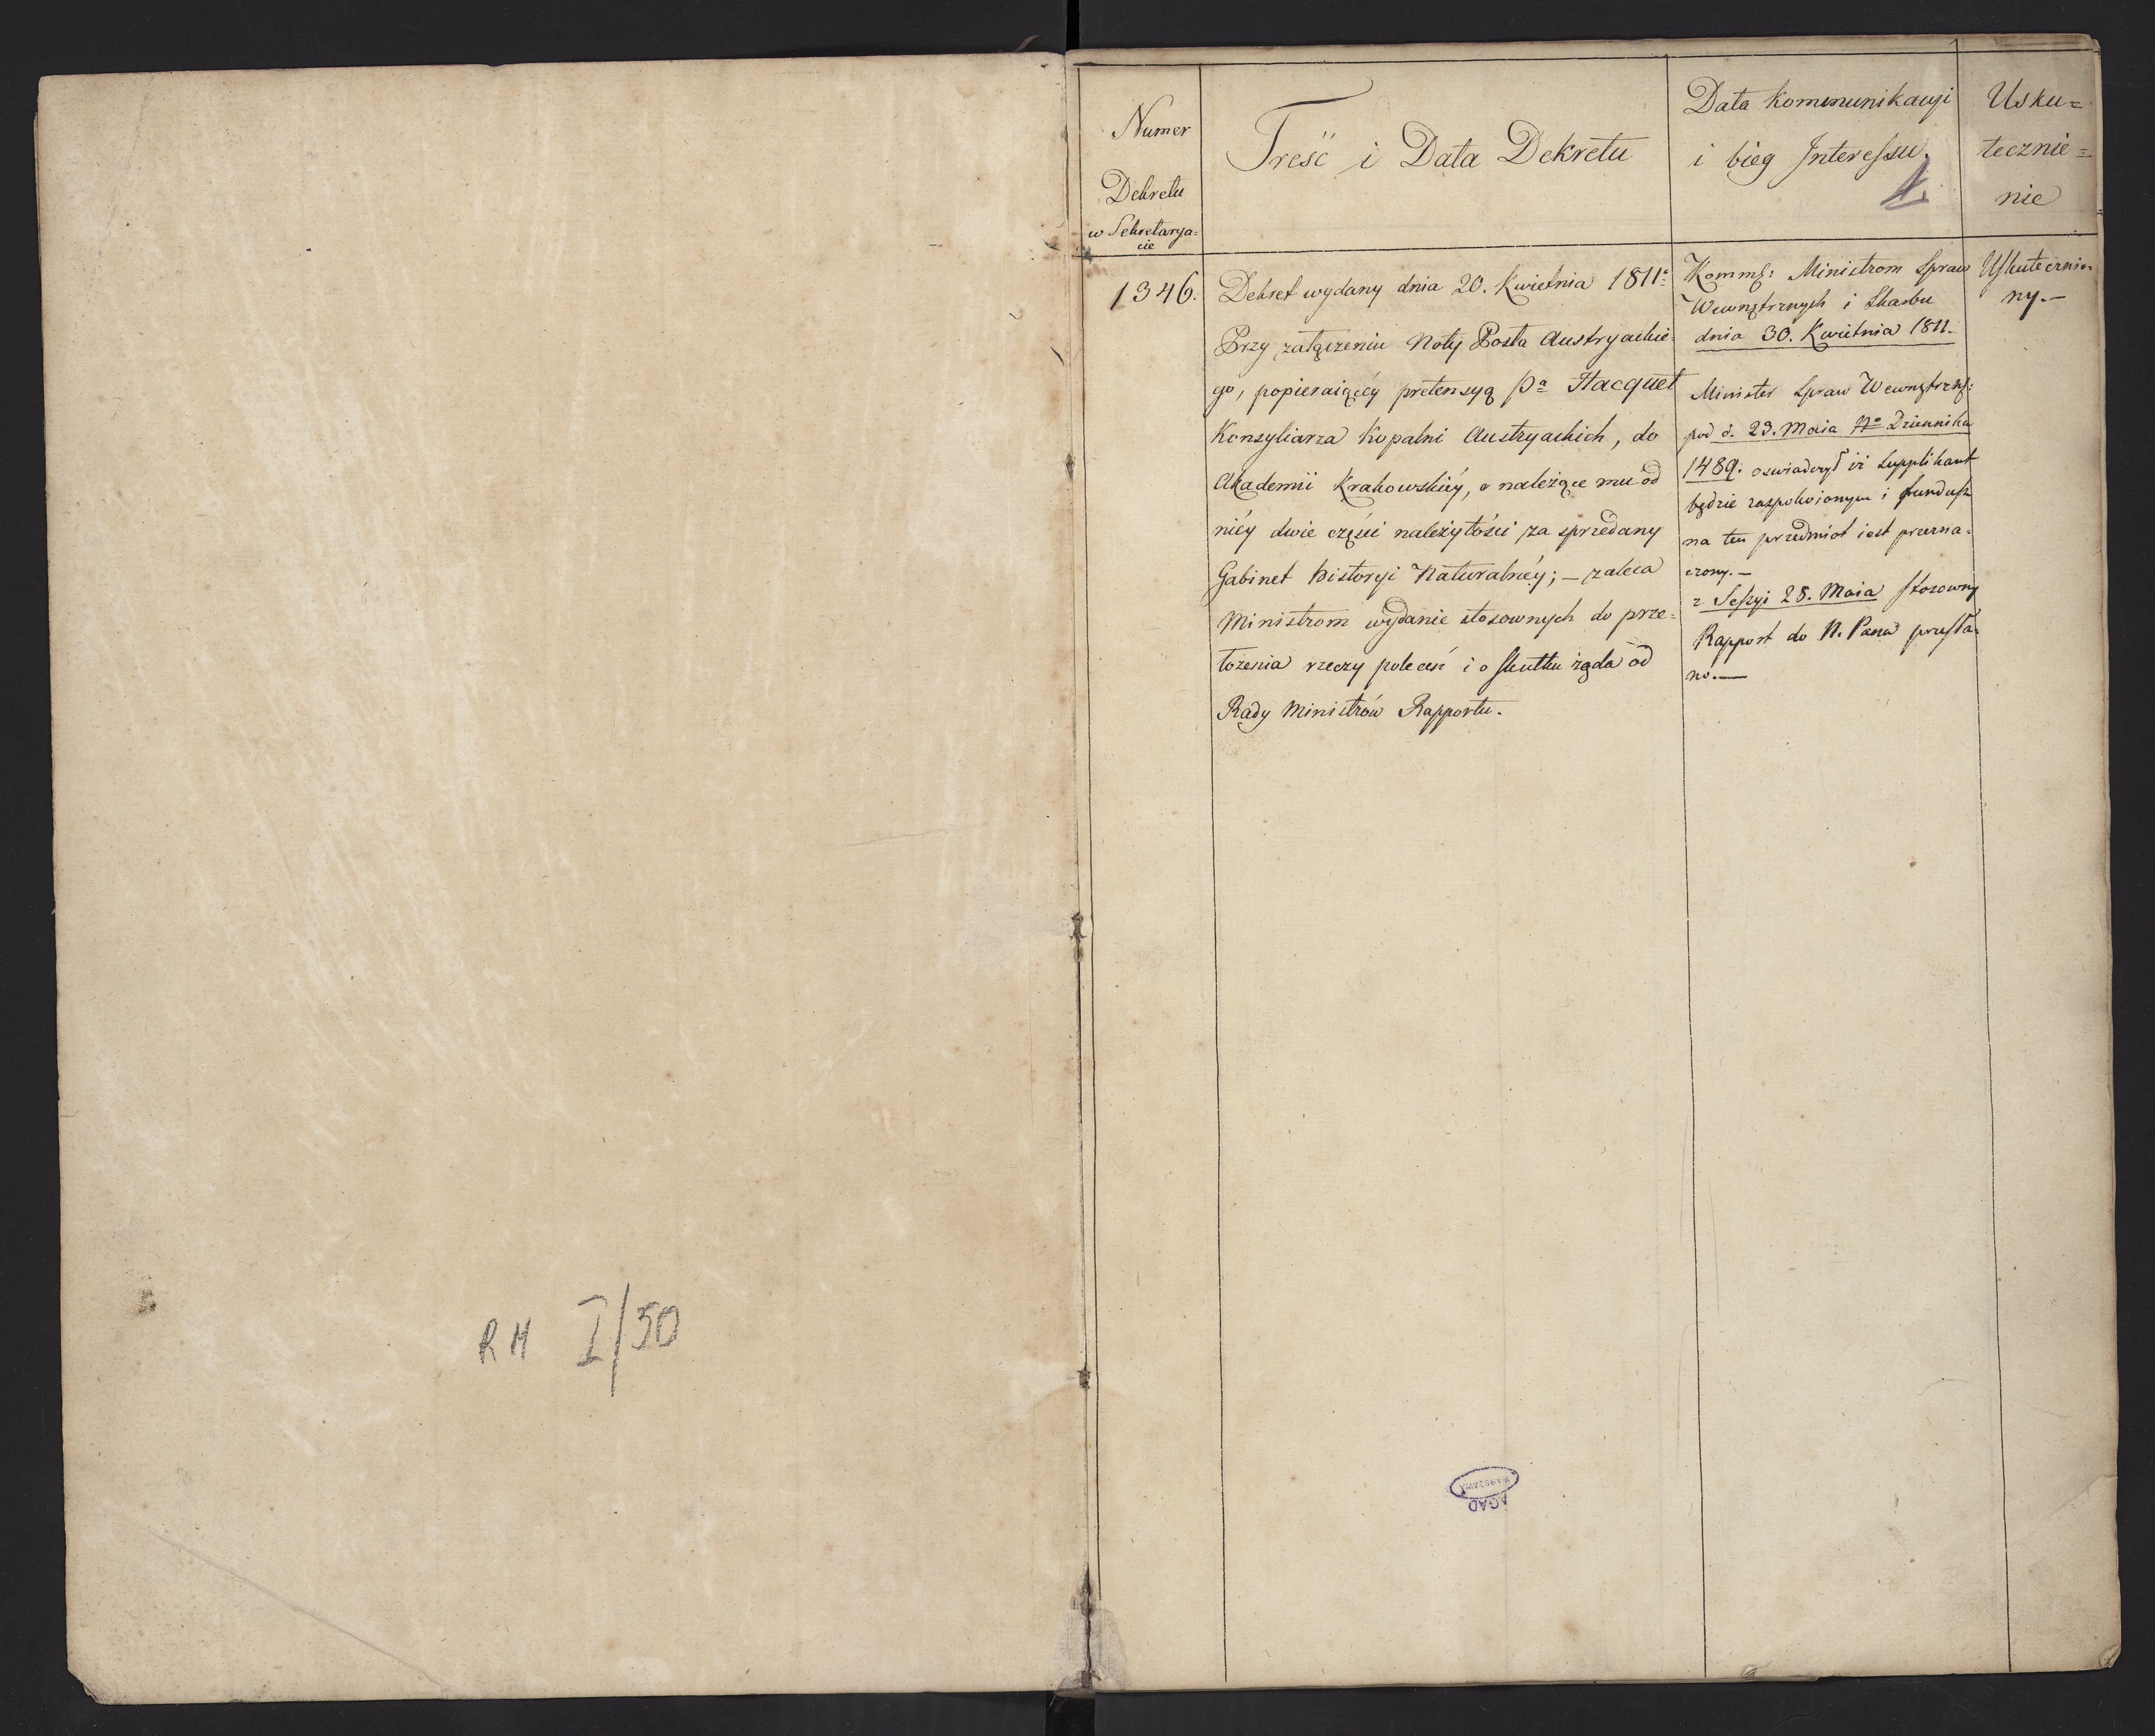 RM I/50
Numer
Dekretu
w Sekretarya=
cie
Treść i Data Dekretu
Data Kommunikacyi
i bieg Interessu.
1.
Usku=
tecznie=
nie
1346.
Dekret wydany dnia 20. Kwietnia 1811.
Przy załączeniu Noty Posła Austryackie=
go, popieraiącéy pretensyą Pa Hacquet
Konsyliarza Kopalni Austryackich, do
Akademii Krakowskiéy, o należące mu od
niéy dwie części należytości za sprzedany
Gabinet historyi Naturalnéy; – zaleca
Ministrom wydanie stosownych do prze=
łożenia rzeczy poleceń i o skutku żąda od
Rady Ministrów Rapportu.
Komm: Ministrom Spraw
Wewnętrznych i Skarbu
dnia 30. Kwietnia 1811.
Minister Spraw Wewnętrzn:
pod d. 23. Maia No Dziennika
1489. oswiadczył iż Supplikant
będzie zaspokoionym i fundusz
na ten przedmiot iest przezna=
czony. –
z Sessyi 28. Maia stosowny
Rapport do N. Pana przesła=
no. —
Uskutecznio=
ny. –
AGAD
WARSZAWA